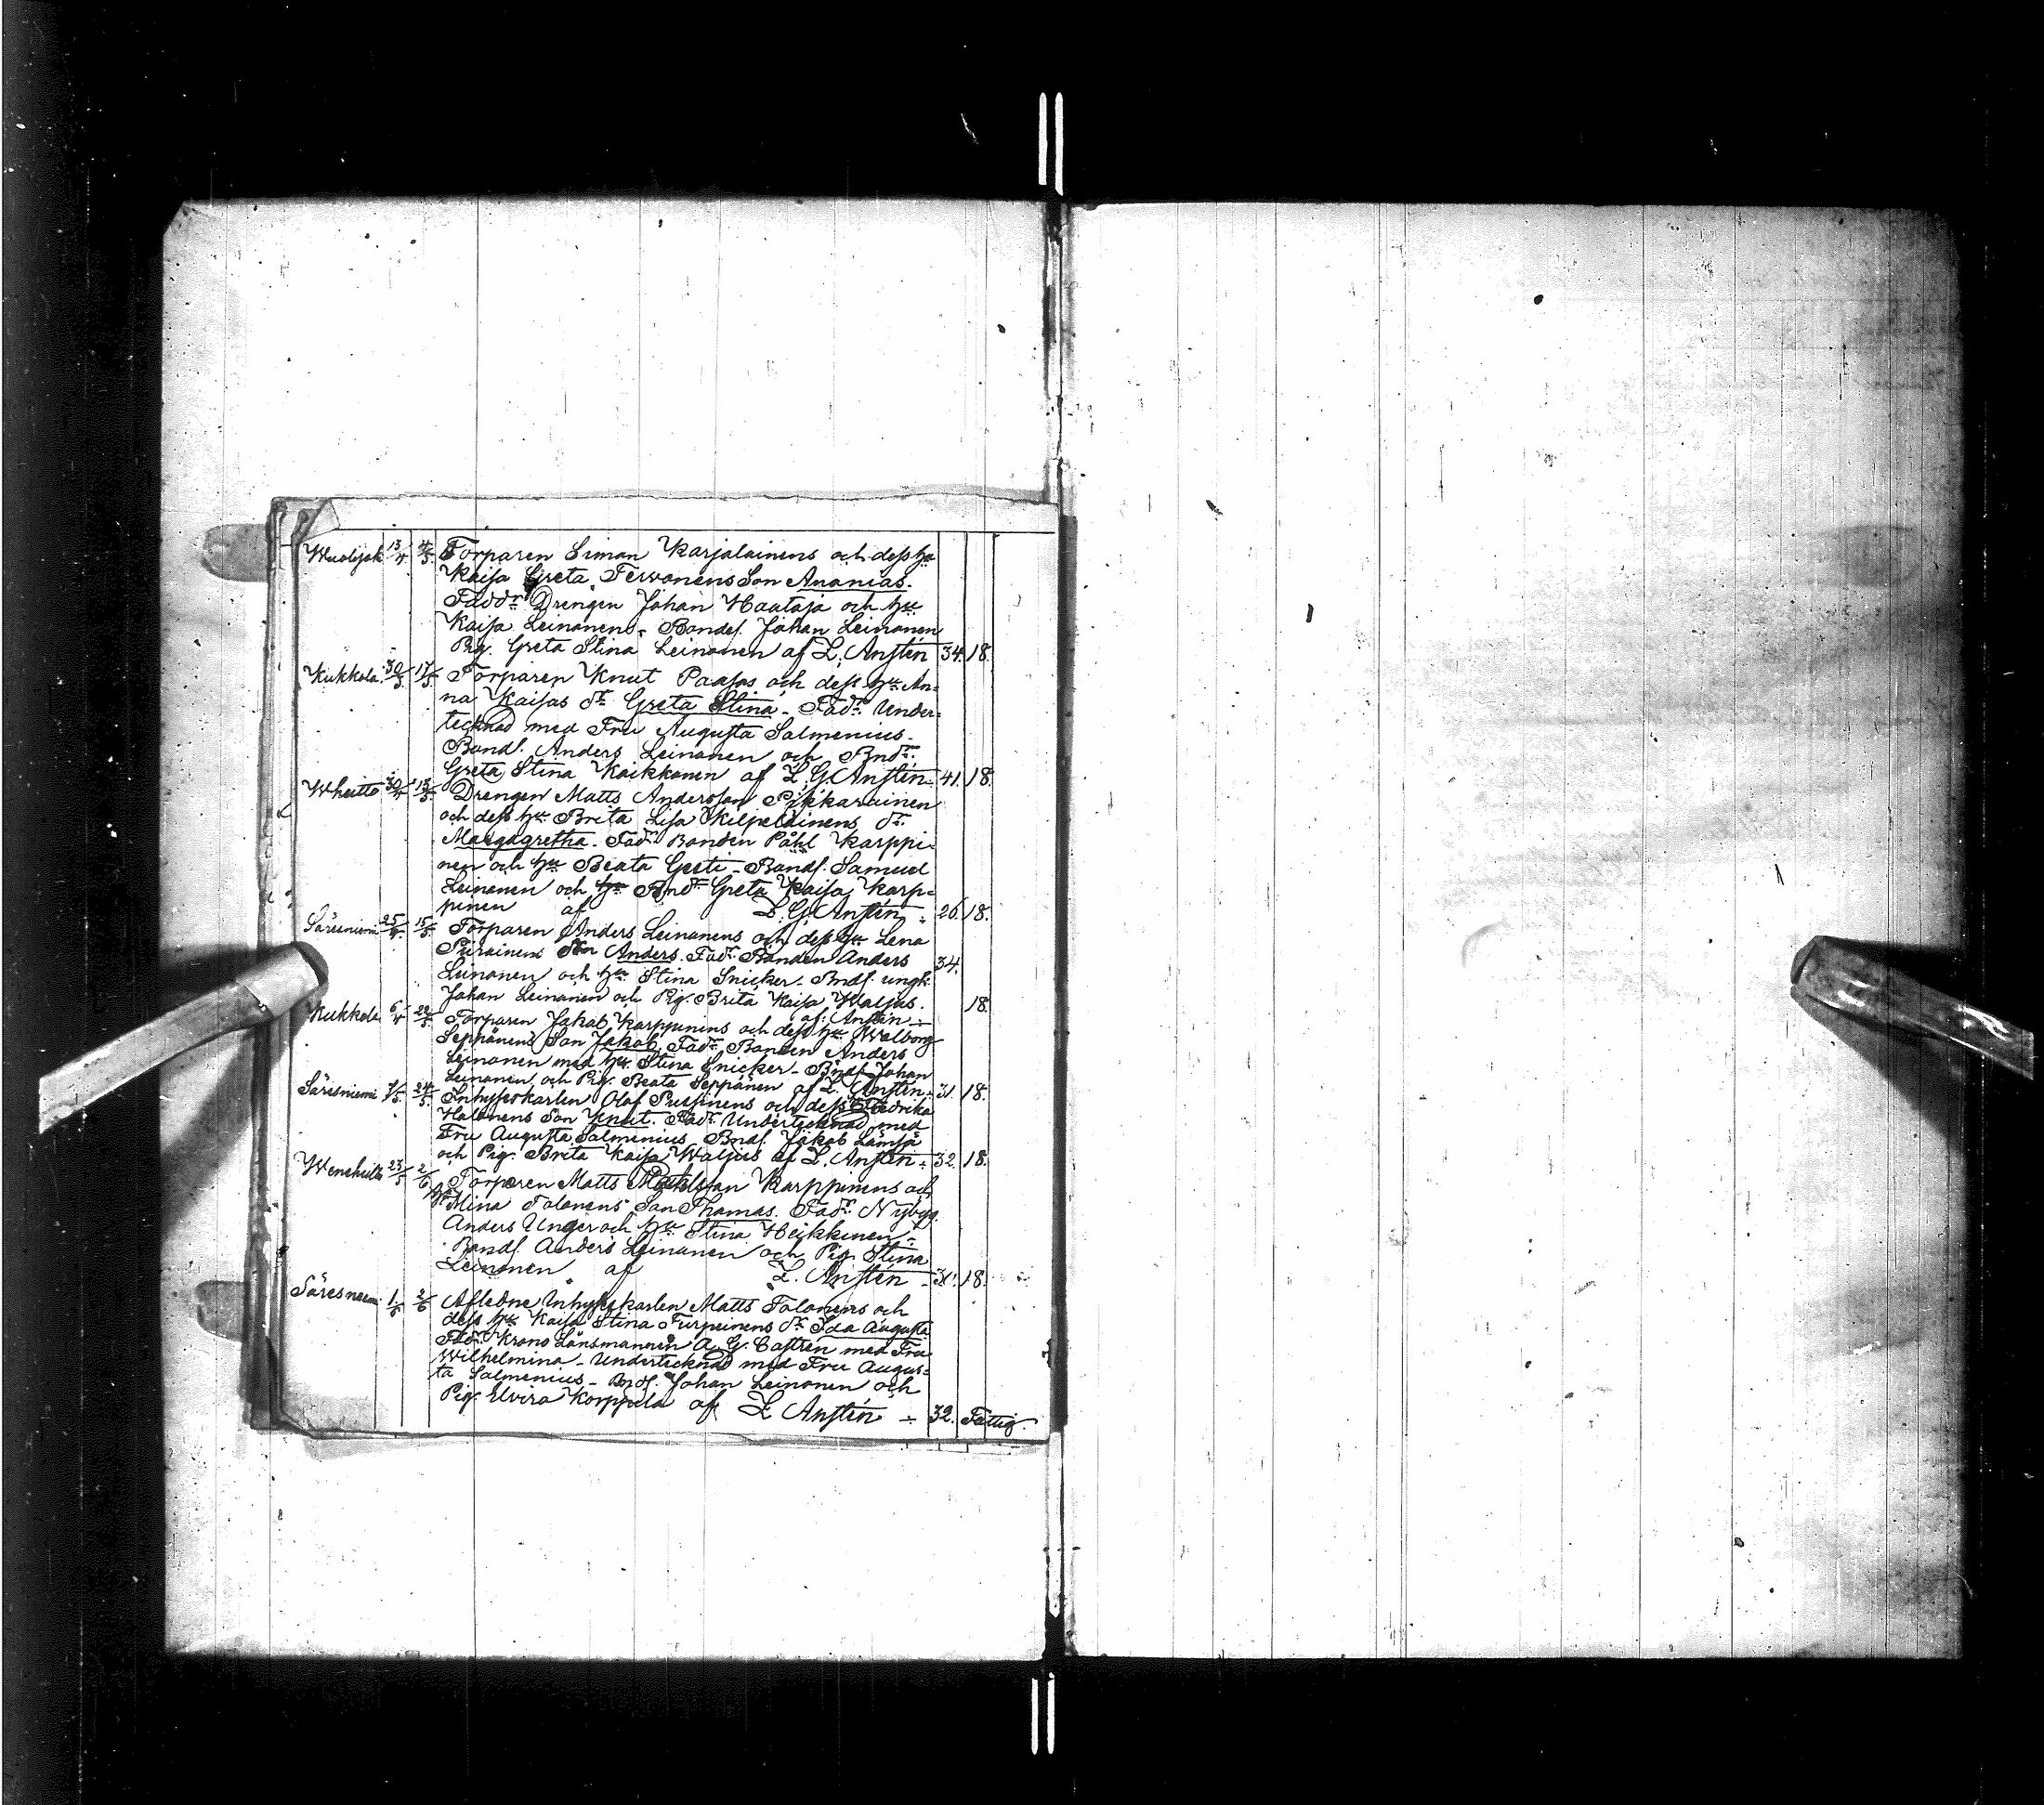 Wuolijok 13/4 4/5 Torparen Simon Karjalainens och dess hu
Kaisa Greta Terwonens Son Ananias.
Faddr Drengen Johan Haataja och hu
Kaisa Leinonens. Bondes. Johan Leinonen
Pig. Greta Stina Leinonen af L. Anstén 34. 18.
Kukkola 30/3 17/5 Torparen Knut Paasos och dess hu An-
na Kaisas dr Greta Stina - Fadr Under-
tecknad med Fru Augusta Salmenius -
Bonds. Anders Leinonen och Bndr
Greta Stina Kaikkonen af L. G. Anstén 41. 18
Wheitto 30/4 13/5 Drengen Matts Andersson Pikkarainen
och dess hu Brita Lisa Kilpeläinens dr
Margagretha. Fadr Bonden Påhl Karppi-
nen och hu Beata Greti - Bonds. Samuel
Leinonen och Bndr Greta Kaisa Karp-
pinen af L. G. Anstén 26. 18.
Säresniemi 25/4 15/5 Torparen Anders Leinonens och dess hu Lena
Piirainens Son Anders. Fadr Bonden Anders
Leinonen och hu Stina Snicker - Bnds. ungk. 34.
Johan Leinonen och Pig. Brita Kaisa Waljus. 18.
af Anstén
Kukkola 6/4 22/5 Torparen Jakob Karppinens och dess hu Walborg
Seppänens Son Jakob. Fadr Bonden Anders
Leinonen med hu Stina Snicker - Bnds. Johan
Leinonen och Pig. Beata Seppänen af L. Anstén 31. 18.
Säresniemi 7/5 24/5 Inhyseskarlen Olof Pursinens och dess hu Fredrika
Halonens Son Knut. Fadr Undertecknad med
Fru Augusta Salmenius Bnds. Jakob Lämsä
och Pig. Brita Kaisa Waljus af L. Anstén 32. 18.
Weneheitto 23/5 2/6 Torparen Matts Karppinens och
hu Mina Tolonens Son Thomas. Fadr Nybyg.
Anders Unger och hu Stina Heikkinen -
Bonds. Anders Leinonen och Pig. Stina
Leinonen af L. Anstén 31. 18.
Säresniemi 1/6 2/6 Afledne Inhyseskarlen Matts Tolonens och
dess hu Kaisa Stina Turpeinens dr Ida Augusta
Fadr Krono Länsmannen A. G. Castrén med Fru
Wilhelmina - Undertecknad med Fru Augus-
ta Salmenius - Bnds. Johan Leinonen och
Pig. Elvira Korppila af L Anstén 32. Fattig.